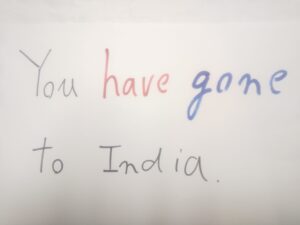 You have gone
to India.